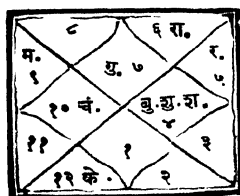 ८ ६ रा.
म. र.
९ गु. ७ ५
१० चं. बु. शु. श.
४
११ १ ३
१२ के. २